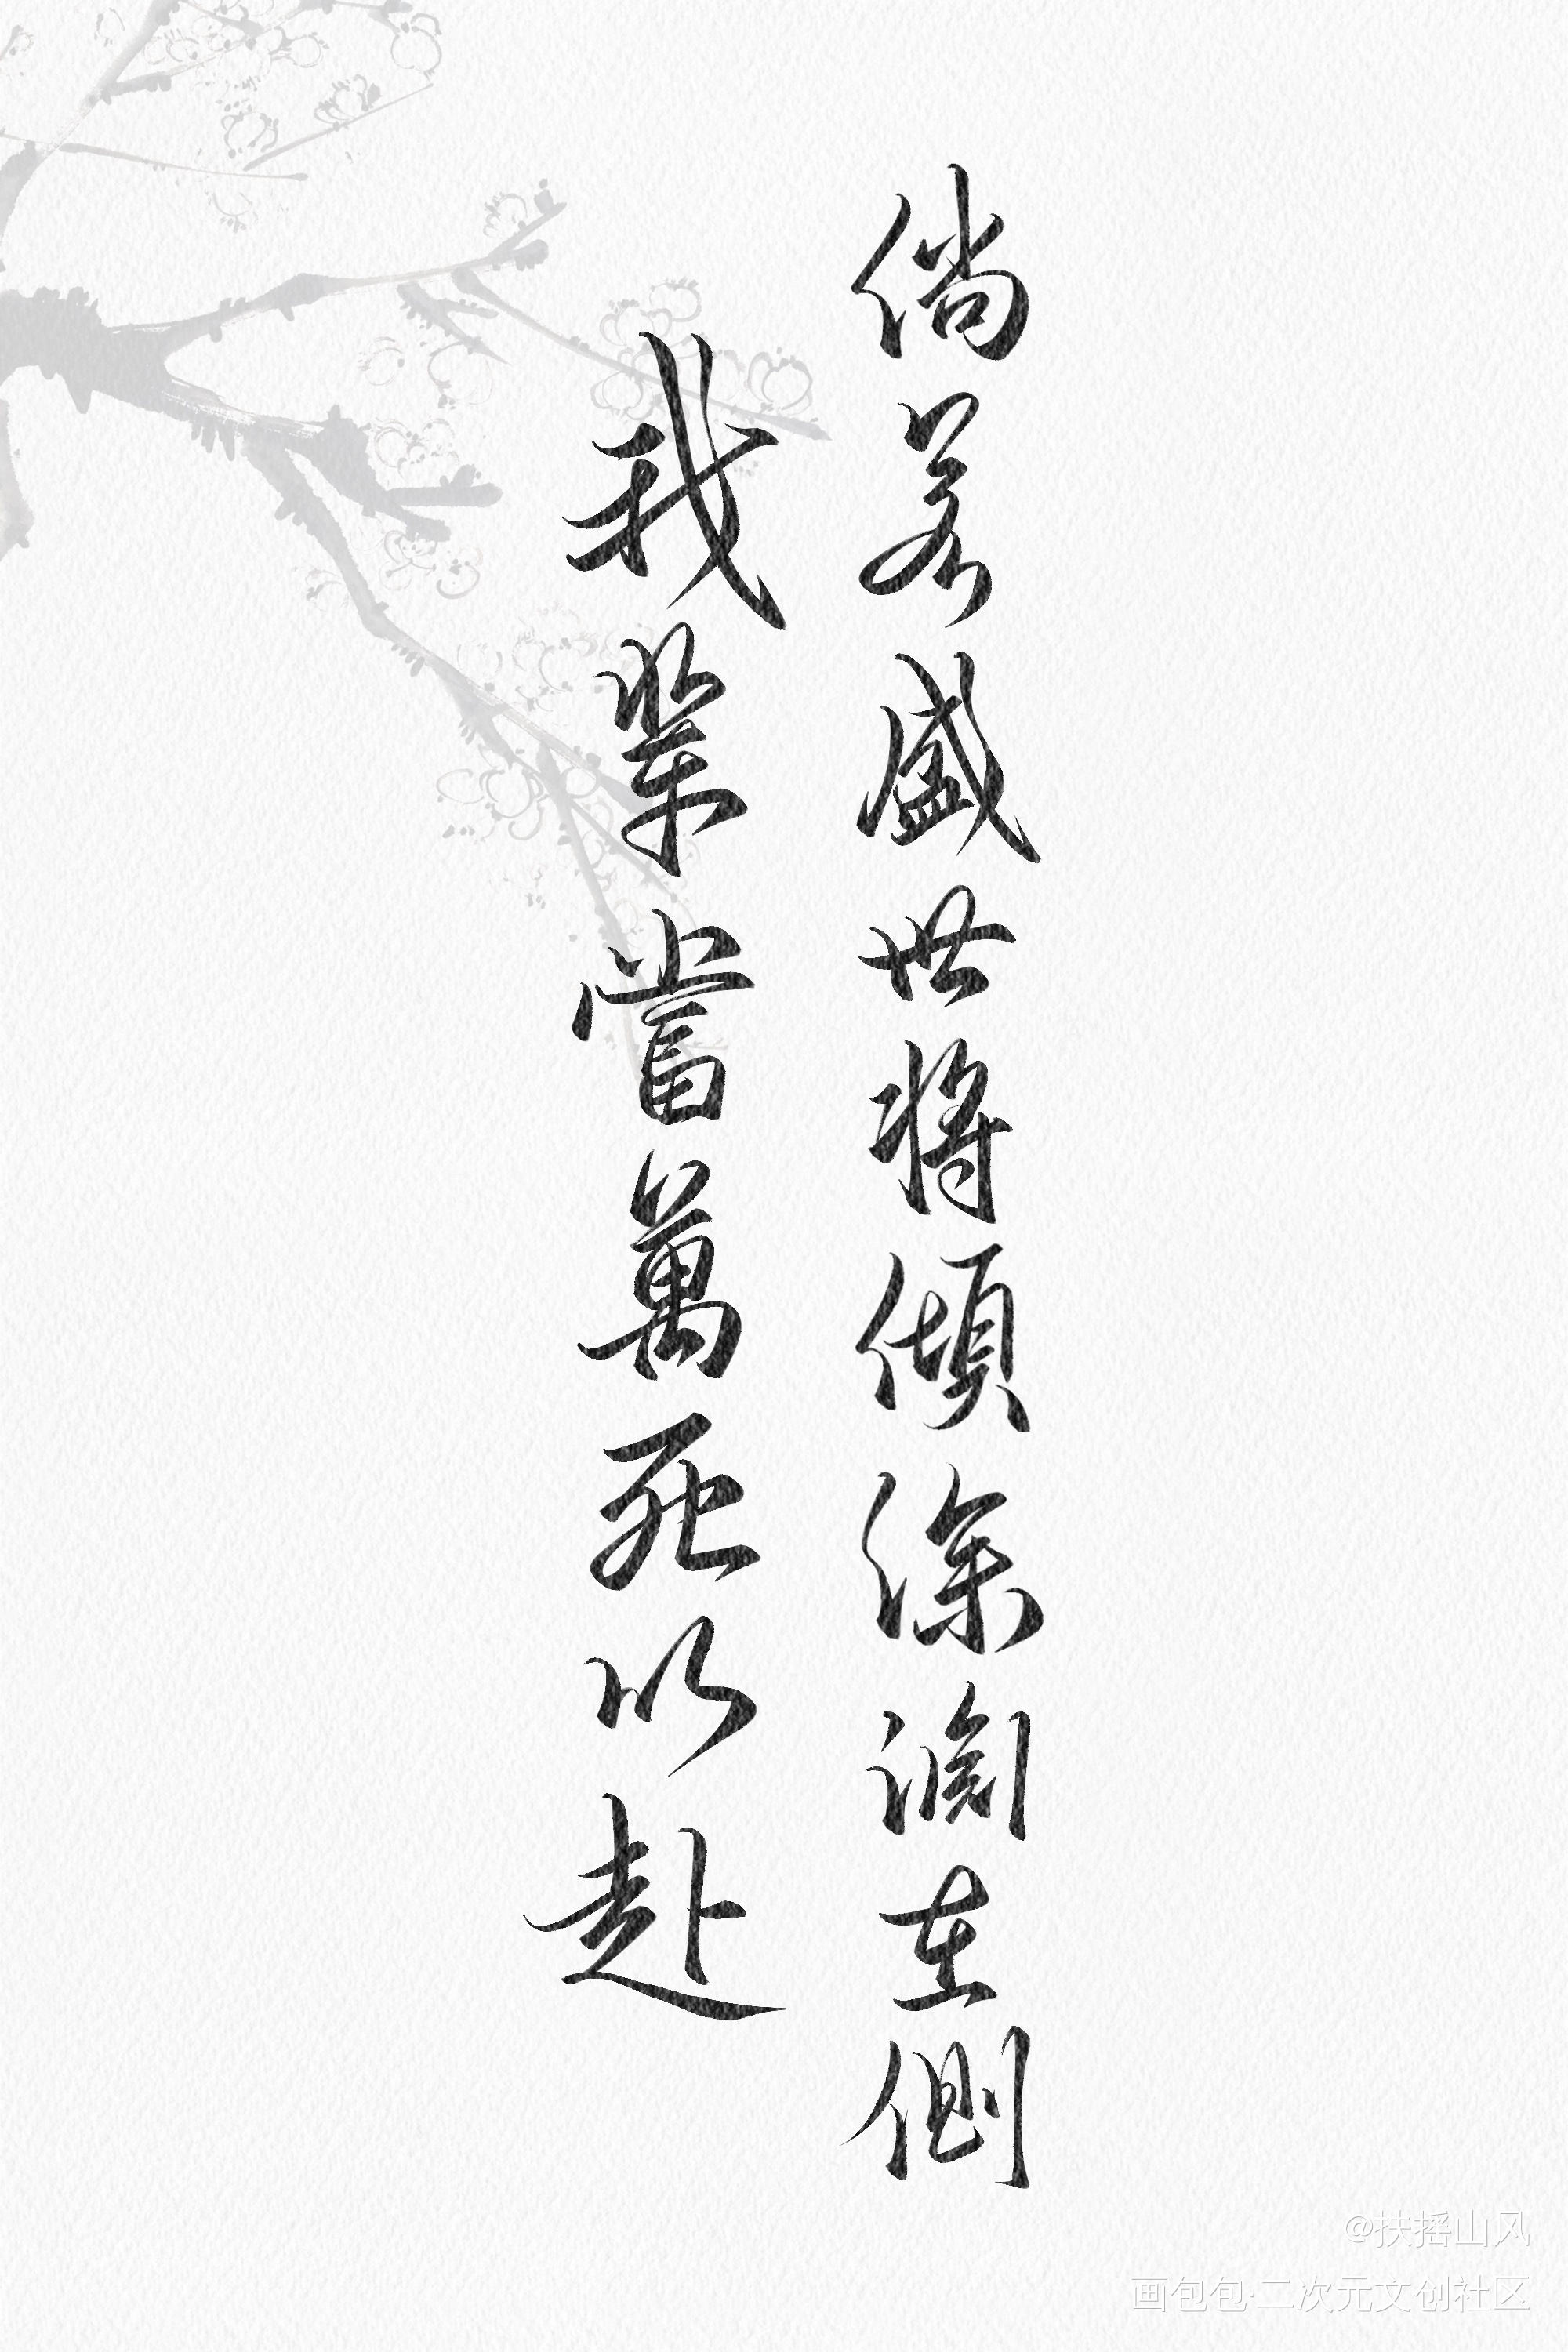 倘若盛世将傾深淵在側
我輩當萬死以赴
@扶摇山风
画包包·二次元文创社区